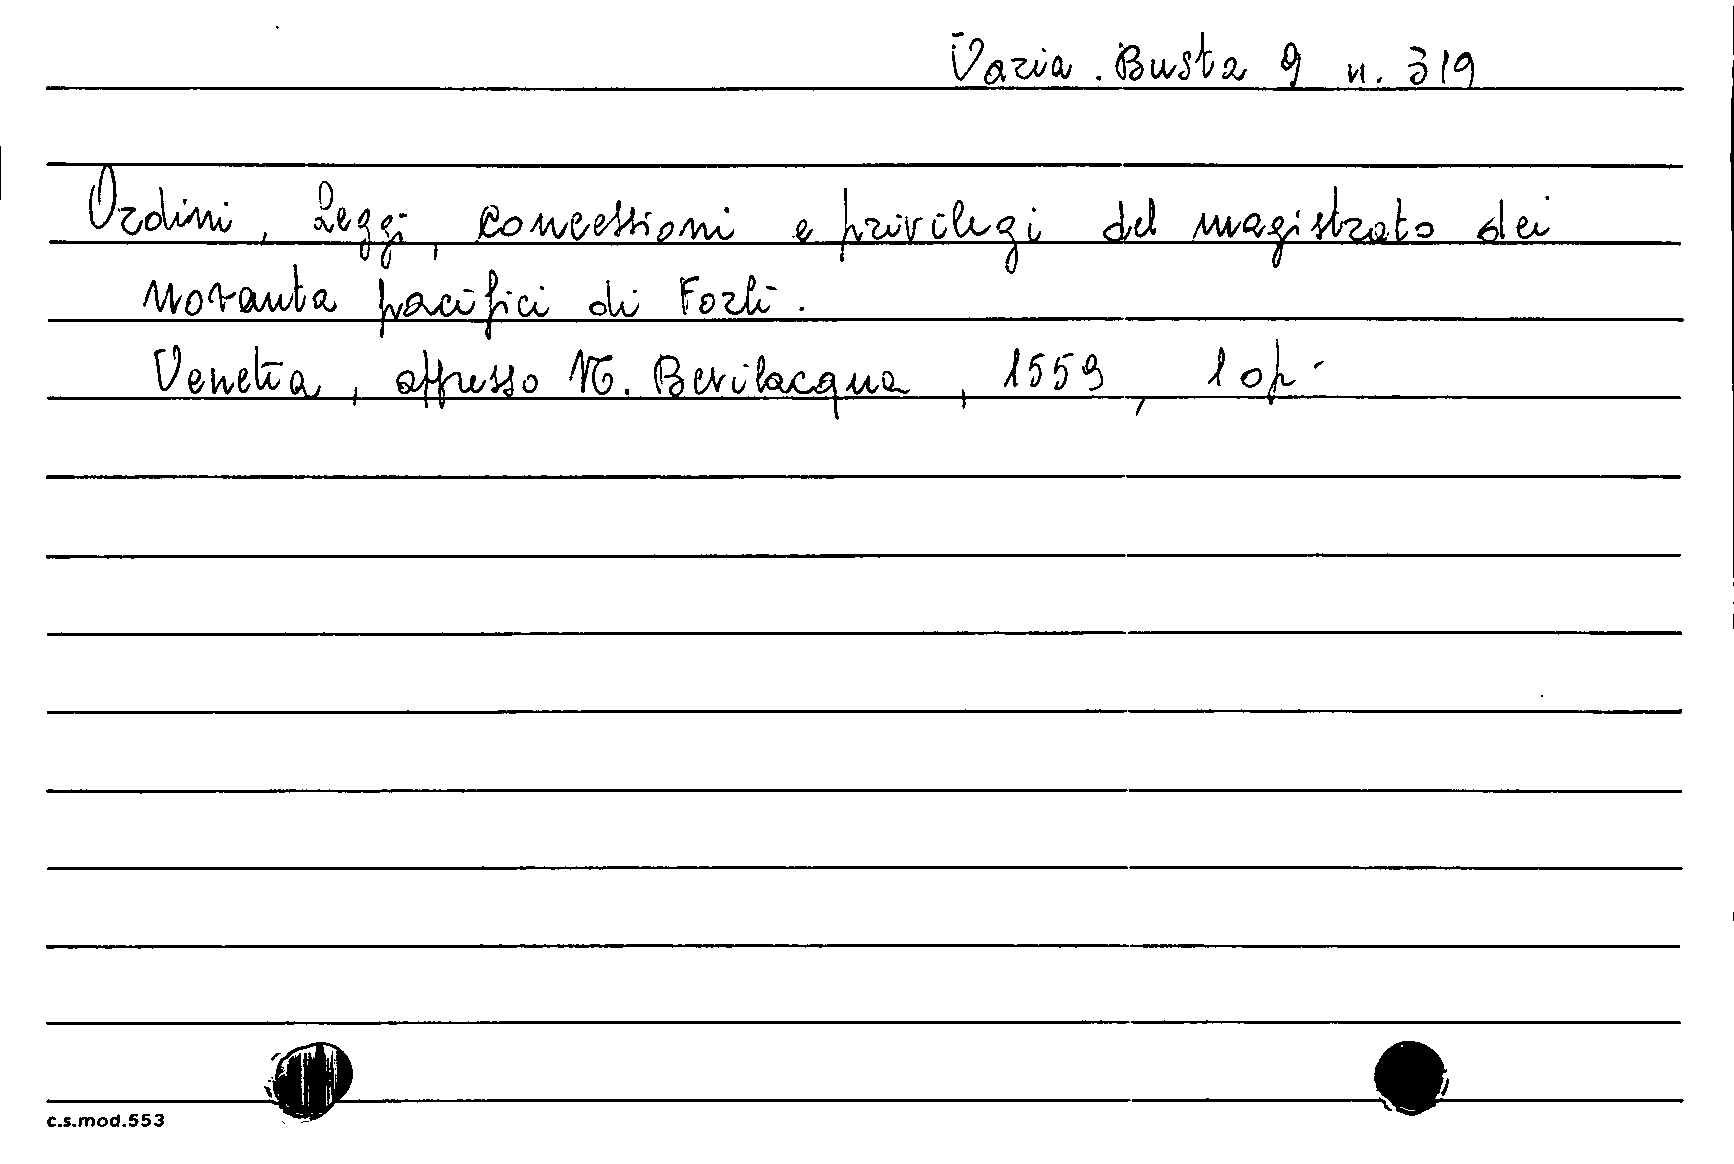 Varia. Busta 9 n. 319
Ordini, Leggi, concessioni e privilegi del magistrato dei
Novanta pacifici di Forlì.
Venetia, appresso N. Bevilacqua, 1559, 1 op.
c.s.mod.553